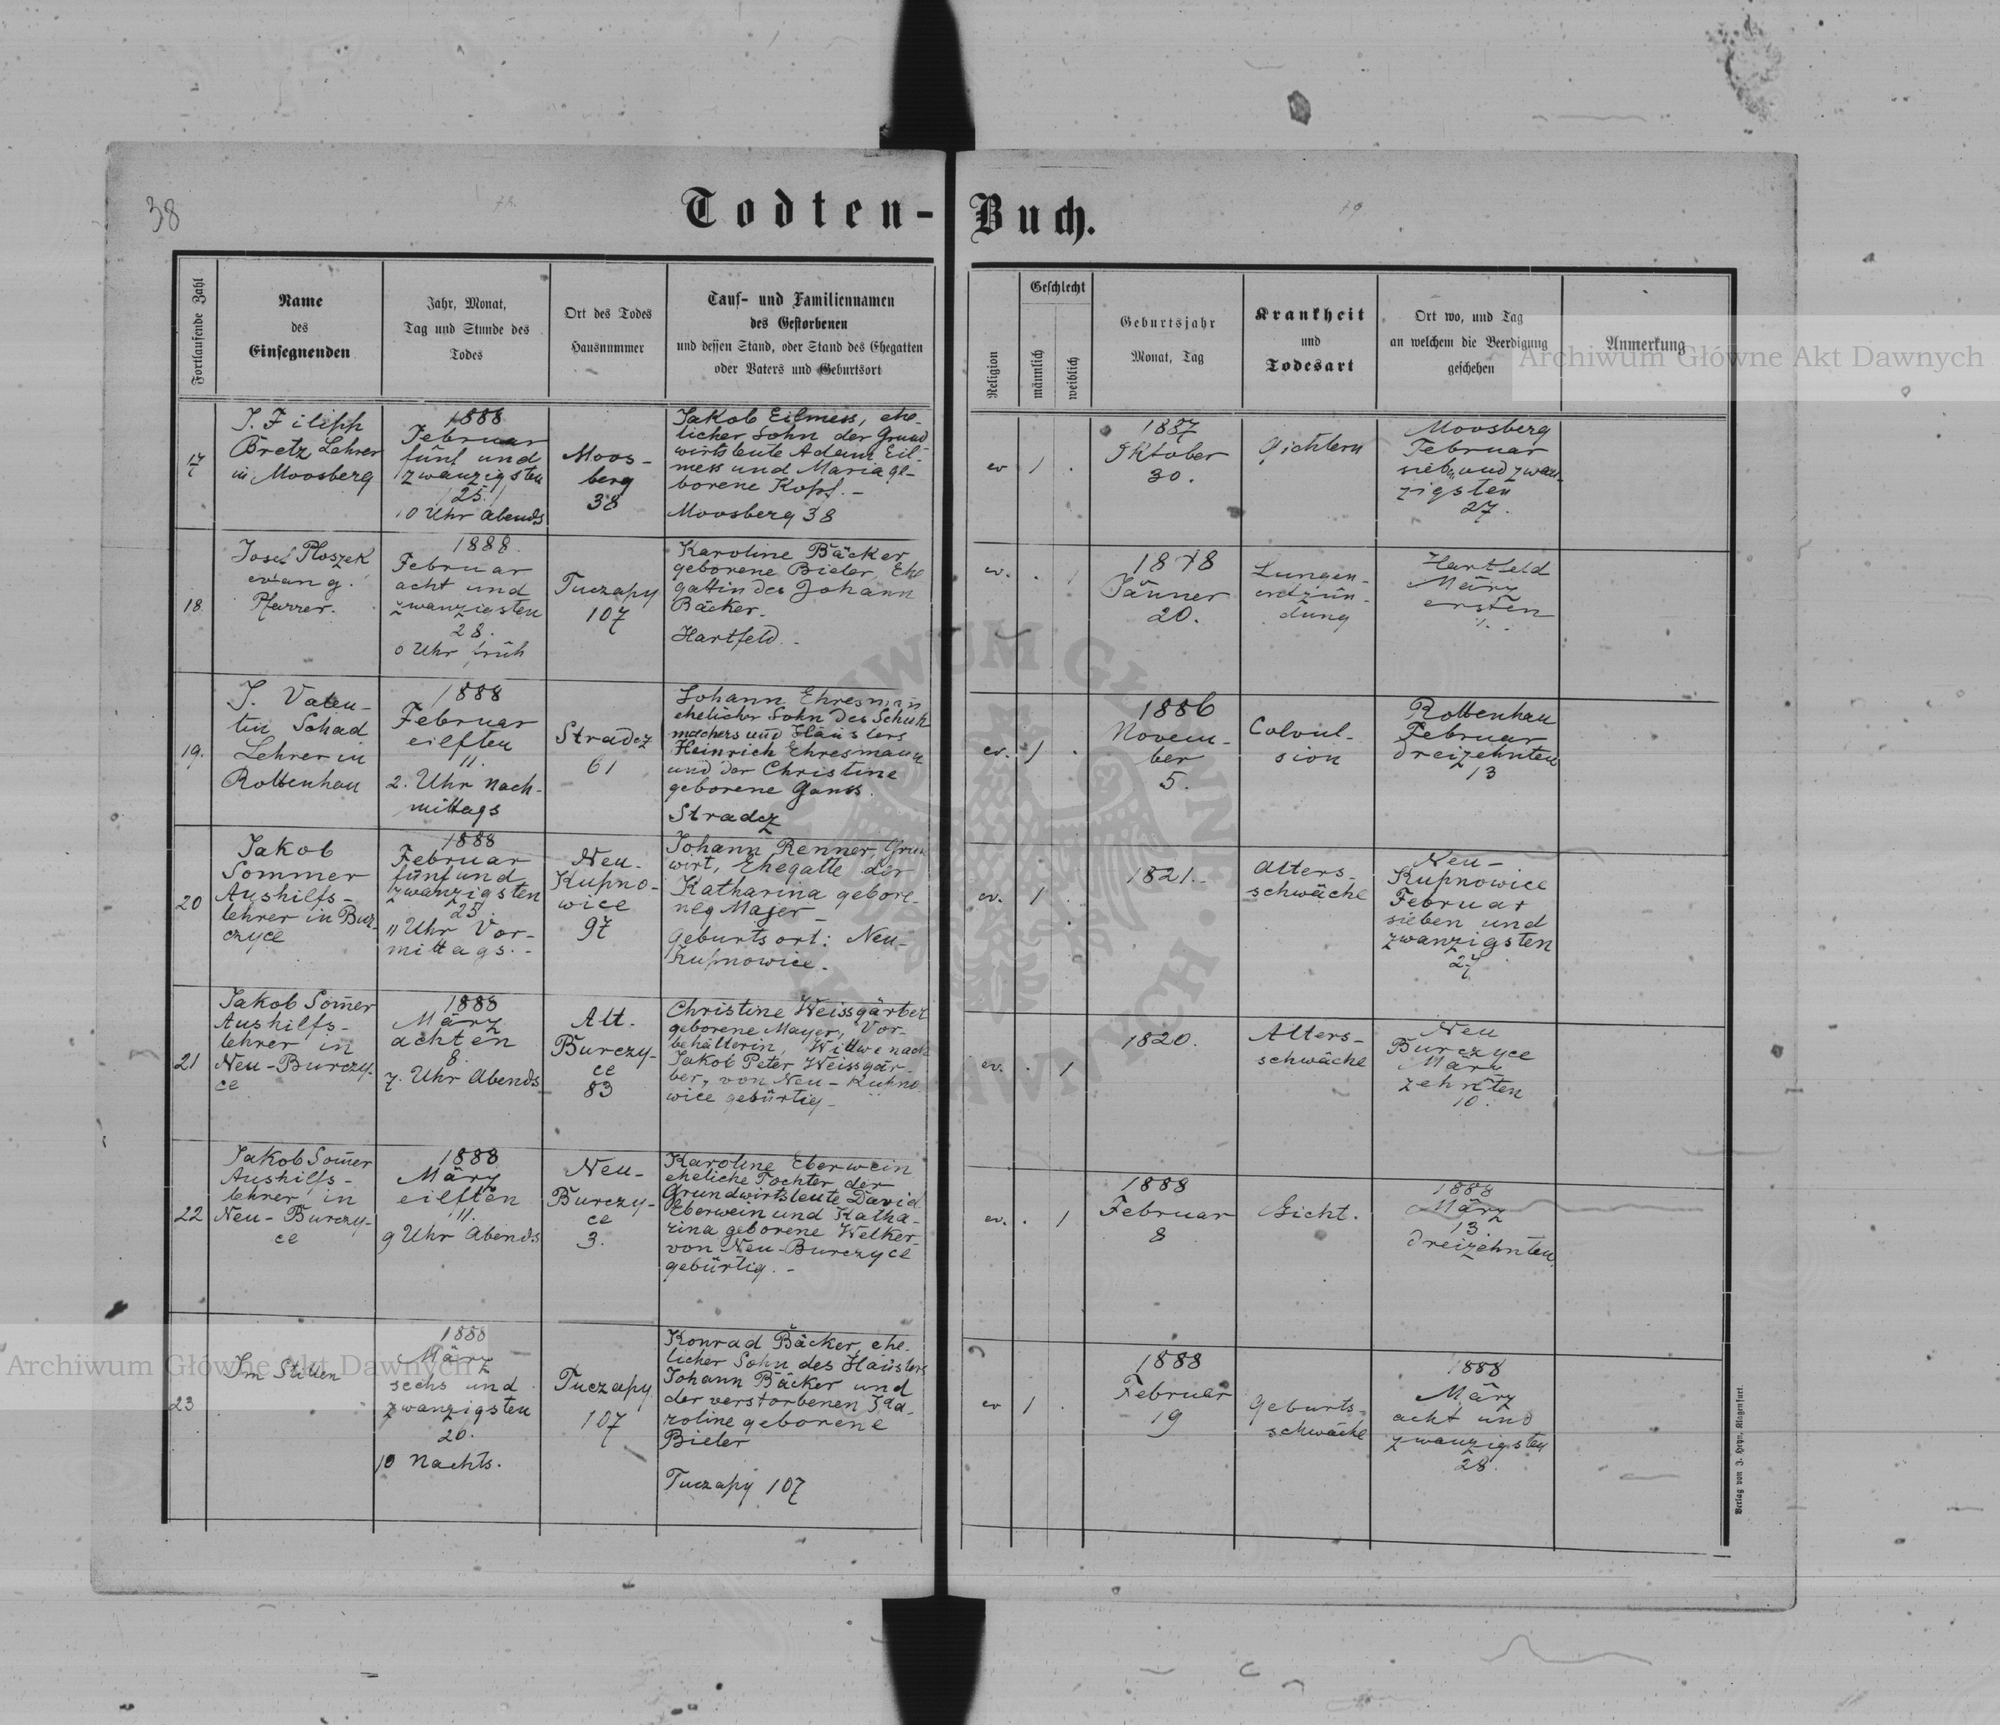 38
78.
79
Todten-Buch.
Fortlaufende Zahl
Name
des
Einsegnenden
Jahr, Monat,
Tag und Stunde des
Todes
Ort des Todes
Hausnummer
Tauf- und Familiennamen
des Gestorbenen
und dessen Stand, oder Stand des Ehegatten
oder Vaters und Geburtsort
Religion
Geschlecht
männlich
weiblich
Geburtsjahr
Monat, Tag
Krankheit
und
Todesart
Ort wo, und Tag
an welchem die Beerdigung
geschehen
Anmerkung
17
J. Filipp
Bretz Lehrer
in Moosberg
1888
Februar
fünf und
zwanzigsten
25.
10 Uhr Abends
Moos-
berg
38
Jakob Eilmess, ehe-
licher Sohn der Grund
wirtsleute Adam Eil-
mess und Maria ge-
borene Kopf. -
Moosberg 38
ev
1
.
1887
Oktober
30.
Gichtern
Moosberg
Februar
sieb. und zwan-
zigsten
27.
18.
Josef Ploszek
evang.
Pfarrer.
1888.
Februar
acht und
zwanzigsten
28.
0 Uhr früh
Tuczapy
107
Karoline Bäcker
geborene Bieler, Ehe
gattin des Johann
Bäcker.
Hartfeld. -
ev.
.
1
1848
Jänner
20.
Lungen-
entzün-
dung
Hartfeld
März
ersten
1.
19.
J. Valen-
tin Schad
Lehrer in
Rottenhan
1888
Februar
eilften
11.
2. Uhr Nach-
mittags
Stradcz
61
Johann Ehresman
ehelicher Sohn des Schuh
machers und Häuslers
Heinrich Ehresmann
und der Christine
geborene Ganss.
Stradcz
ev.
1
.
1886
Novem-
ber
5.
Colvul-
sion
Rottenhan
Februar
dreizehnten
13
20
Jakob
Sommer
Aushilfs-
lehrer in Bur-
czyce
1888
Februar
fünf und
zwanzigsten
25.
11 Uhr Vor-
mittags. -
Neu-
Kupno-
wice
97
Johann Renner, Grun
wirt, Ehegatte der
Katharina gebore-
neg Majer -
Geburtsort: Neu-
Kupnowice.
ev.
1
.
1821. -
Alters-
schwäche
Neu-
Kupnowice
Februar
sieben und
zwanzigsten
27.
21
Jakob Som̄er
Aushilfs-
lehrer in
Neu-Burczy-
ce
1888
März
achten
8.
7. Uhr Abends
Alt.
Burczy-
ce
83
Christine Weissgärber
geborene Mayer, Vor-
behälterin, Wittwe nach
Jakob Peter Weissgär-
ber, von Neu-Kupno
wice gebürtig -
ev.
.
1
1820.
Alters-
schwäche
Neu
Burczyce
März
zehnten
10.
22
Jakob Som̄er
Aushilfs-
lehrer in
Neu-Burczy-
ce
1888
März
eilften
11.
9 Uhr Abends
Neu-
Burczy-
ce
3.
Karoline Eberwein
eheliche Tochter der
Grundwirtsleute David
Eberwein und Katha-
rina geborene Welker
von Neu-Burczyce
gebürtig. -
ev.
.
1
1888
Februar
8
Gicht.
1888
März
13.
dreizehnten
23
Im Stillen
1888
März
sechs und
zwanzigsten
26.
10 Nachts.
Tuczapy
107
Konrad Bäcker, ehe-
licher Sohn des Häuslers
Johann Bäcker und
der verstorbenen Ka-
roline geborene
Bieler
Tuczapy 107
ev
1
.
1888
Februar
19
Geburts-
schwäche
1888
März
acht und
zwanzigsten
28.
Verlag von J. Heyn, Klagenfurt.
Archiwum Główne Akt Dawnych
Archiwum Główne Akt Dawnych